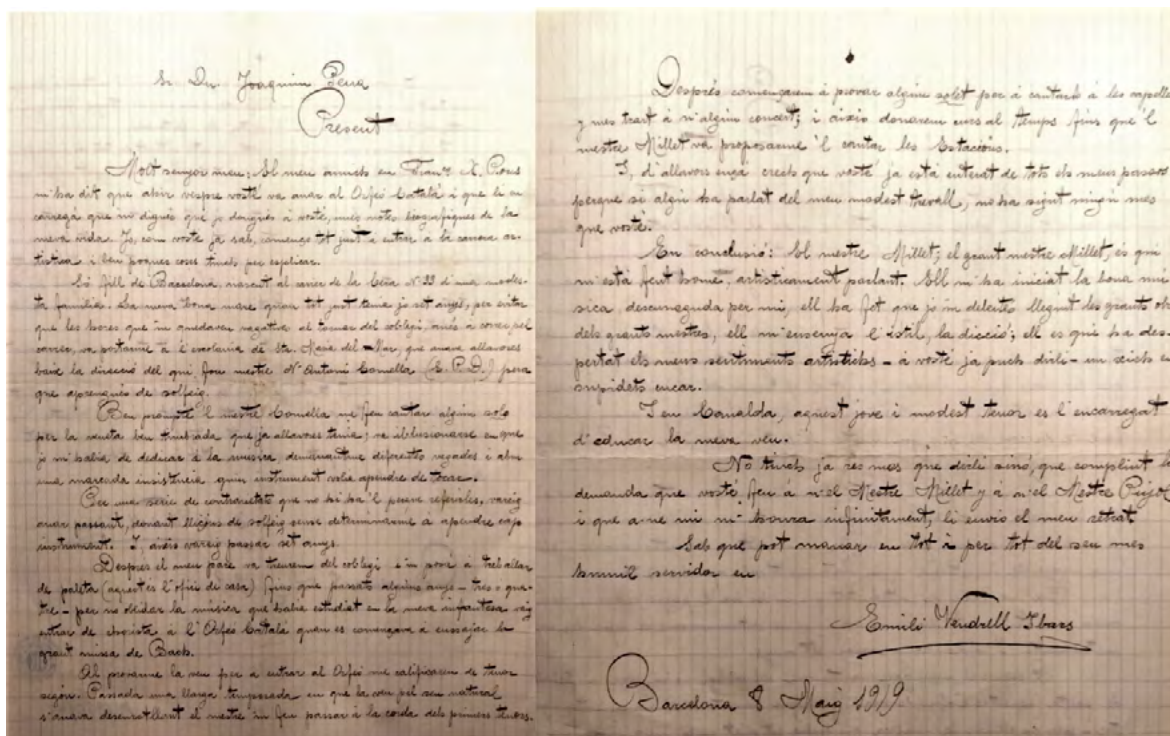 Sr. Dn Joaquim Pena
Present
Molt senyor meu: El meu amich en Franc X. Pons
m'ha dit que ahir vespre vosté va anar al Orfeó Catalá i que li en
carregá que'm digués que jo dongués á vosté, unes notes biografiques de la
meva vida. Jo, com vosté ja sab, començo tot just á entrar á la carrera ar-
tistica i ben poques coses tinch per esplicar.
Só fill de Barcelona, nascut al carrer de la Cera Nº 33 d'una modes-
ta familia. La meva bona mare, quan tot just tenia jo set anys, per evitar
que les hores que'm quedaven vagatives al tornar del colegi, anés á correr pel
carrer, va portarme á l'escolania de Sta. Maria del Mar, que anava allavores
baix la direcció del qui fou mestre N'Antoni Comella (E.P.D.) pera
que aprengués de solfeig.
Ben prompte'l mestre Comella me feu cantar algun solo
per la veueta ben timbrada que ja allavores tenia; va ilusionarse en que
jo m'habia de dedicar á la musica demanantme diferentes vegades i ab
una marcada insistencia quin instrument volia apendre de tocar.
Per una serie de contrarietats que no hi ha'l perque referirles, vareig
anar passant, donant lliçons de solfeig sense determinarme a apendre cap
instrument. I, aixis vareig passar set anys.
Després el meu pare va treurem del colegi i'm posá á treballar
de paleta (aquest es l'ofici de casa) fins que passats alguns anys - tres o qua-
tre - per no olvidar la música que habia estudiat en la meva infantesa vaig
entrar de chorista á l'Orfeó Catalá quan es començava á ensajar la
grant missa de Bach.
Al provarme la veu per á entrar al Orfeó me calificaren de tenor
segón. Passada una llarga temporada en que la veu pel seu natural
s'anava desenrotllant el mestre'm feu passar á la corda dels primers tenors.
Després començarem á provar algun solet per á cantarlo á les capelles
y mes tart á n'algun concert; i aixió donarem curs al temps fins que'l
mestre Millet va proposarme'l cantar les Estacions.
I, d'allavors ençá crech que vosté ja está enterat de tots els meus passos
perque si algú ha parlat del meu modest trevall, no ha sigut ningú mes
que vosté.
En conclusió: El mestre Millet; el grant mestre Millet, es qui
m'está fent home, artisticament parlant. Ell m'ha iniciat la bona mu-
sica, desconeguda per mi, ell ha fet que jo'm delectés llegint les grants obres
dels grants mestres, ell m'ensenya l'éstil, la dicció; ell es qui ha des-
pertat els meus sentiments artistichs - á vosté ja puch dirli - un xich en
supidets encar.
I en Comalda, aquest jove i modest tenor es l'encarregat
d'educar la meva veu.
No tinch ja res mes que dirli sinó, que complint la
demanda que vosté, feu á n'el Mestre Millet y á n'el Mestre Pujol
i que a ne mi m'honra infinitament, li envio el meu retrat
Sab que pot manar en tot i per tot del seu mes
humil servidor en
Emili Vendrell Ibars
Barcelona 8 Maig 1919